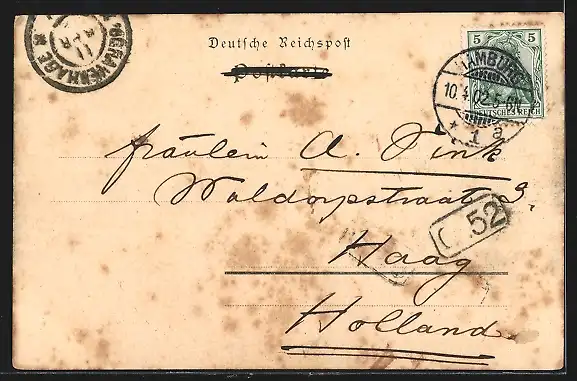 Deutsche Reichspost
Postkarte
5 5
DEUTSCHES REICH
HAMBURG
10.4.02.5-6N.
* 1 a
'S GRAVENHAGE
11
APR
Fräulein A. Fink
Waldorpstraat 3,
Haag
Holland
52